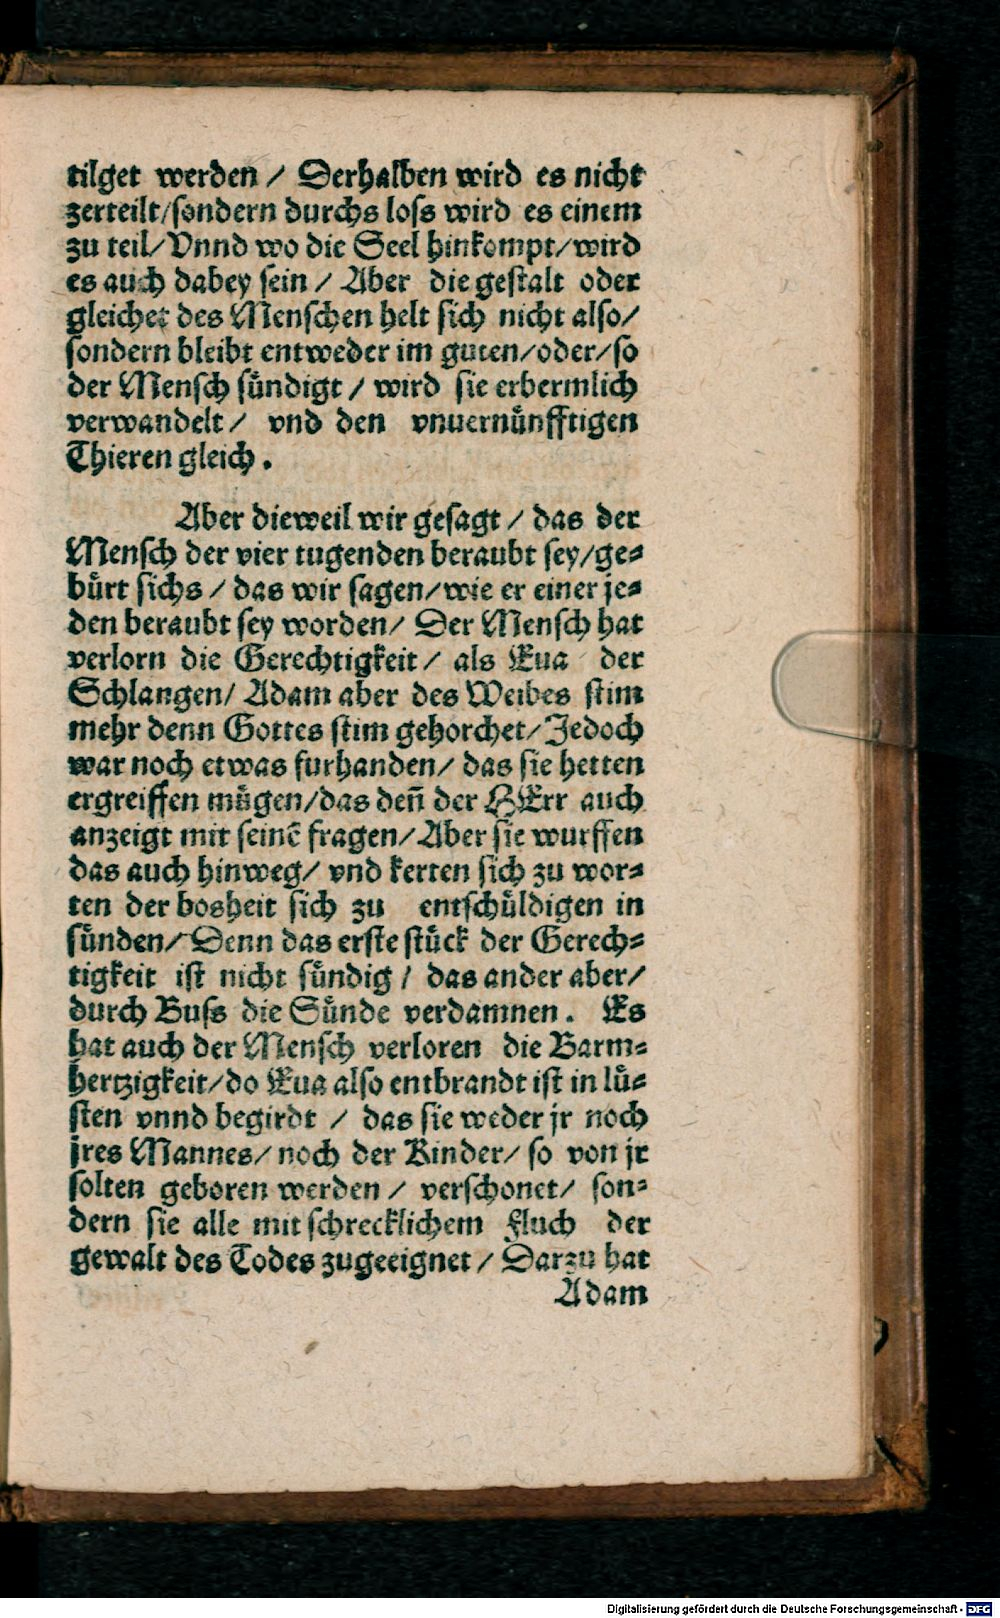 tilget werden / Derhalben wird es nicht
zerteilt/sondern durchs loss wird es einem
zu teil/Vnnd wo die Seel hinkompt/wird
es auch dabey sein / Aber die gestalt oder
gleichet des Menschen helt sich nicht also/
sondern bleibt entweder im guten/oder/so
der Mensch sündigt / wird sie erbermlich
verwandelt / vnd den vnuernünfftigen
Thieren gleich.
Aber dieweil wir gesagt / das der
Mensch der vier tugenden beraubt sey/ge⸗
bürt sichs / das wir sagen/wie er einer je⸗
den beraubt sey worden/ Der Mensch hat
verlorn die Gerechtigkeit / als Eua der
Schlangen/ Adam aber des Weibes stim
mehr denn Gottes stim gehorchet/Jedoch
war noch etwas furhanden/ das sie hetten
ergreiffen mügen/das deñ der HErr auch
anzeigt mit seinē fragen/Aber sie wurffen
das auch hinweg/ vnd kerten sich zu wor⸗
ten der bosheit sich zu entschüldigen in
sünden/Denn das erste stück der Gerech⸗
tigkeit ist nicht sündig / das ander aber/
durch Buss die Sünde verdamnen. Es
hat auch der Mensch verloren die Barm⸗
hertzigkeit/do Eua also entbrandt ist in lü⸗
sten vnnd begirdt / das sie weder jr noch
jres Mannes/noch der Kinder/ so von jr
solten geboren werden / verschonet/ son⸗
dern sie alle mit schrecklichem fluch der
gewalt des Todes zugeeignet / Darzu hat
Adam
Digitalisierung gefördert durch die Deutsche Forschungsgemeinschaft - DFG